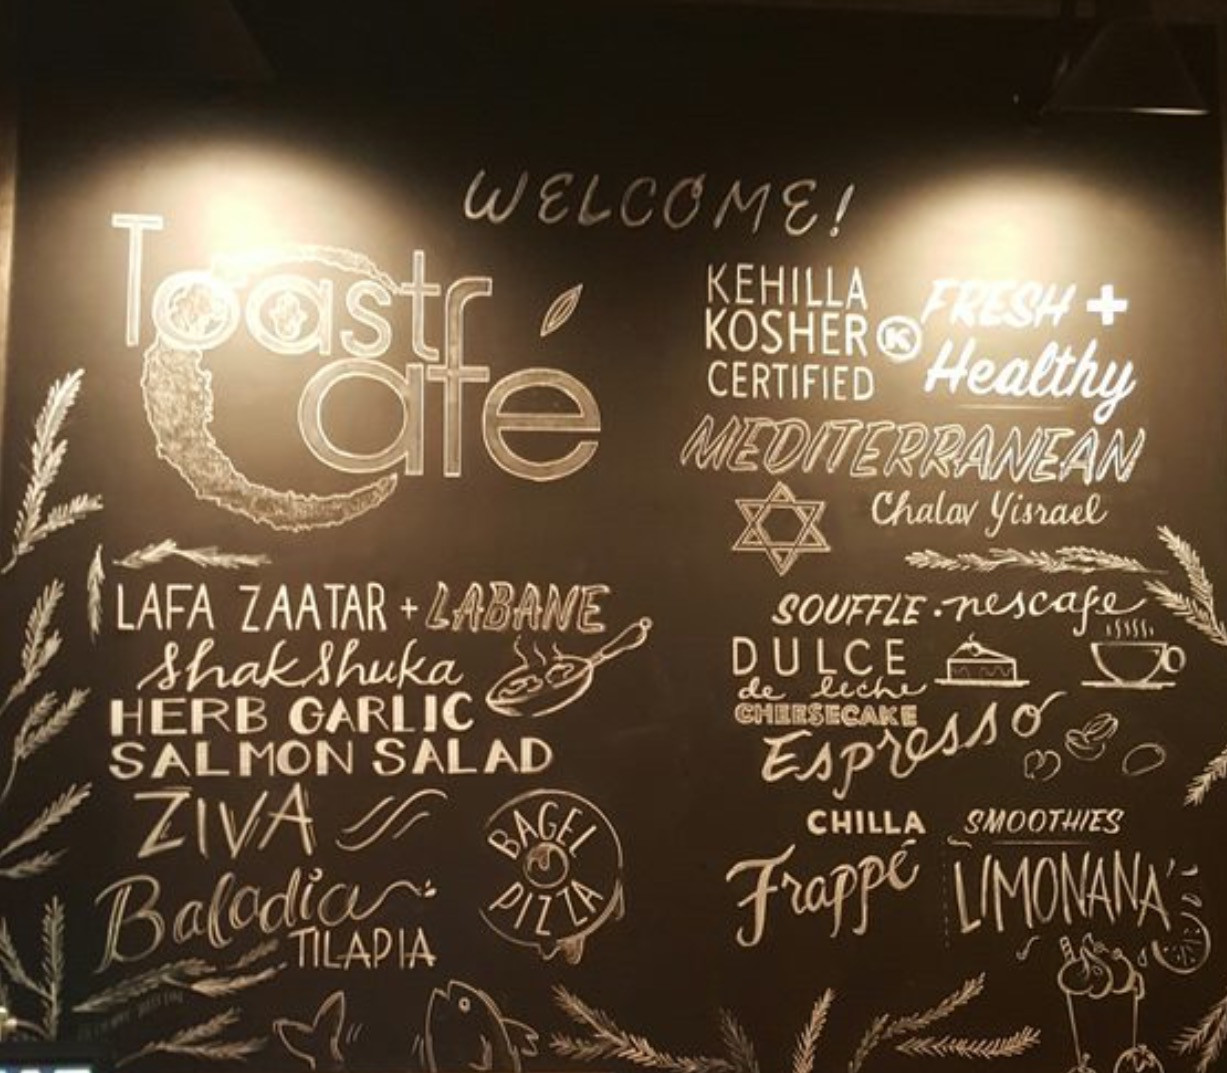 WELCOME!
Toast
Café
KEHILLA
KOSHER K
CERTIFIED
FRESH +
Healthy
MEDITERRANEAN
Chalav Yisrael
LAFA ZAATAR + LABANE
Shakshuka
HERB GARLIC
SALMON SALAD
ZIVA
BAGEL
PIZZA
Baladia
TILAPIA
SOUFFLE · nescafe
DULCE
de leche
CHEESECAKE
Espresso
CHILLA
Frappé
SMOOTHIES
LIMONANA